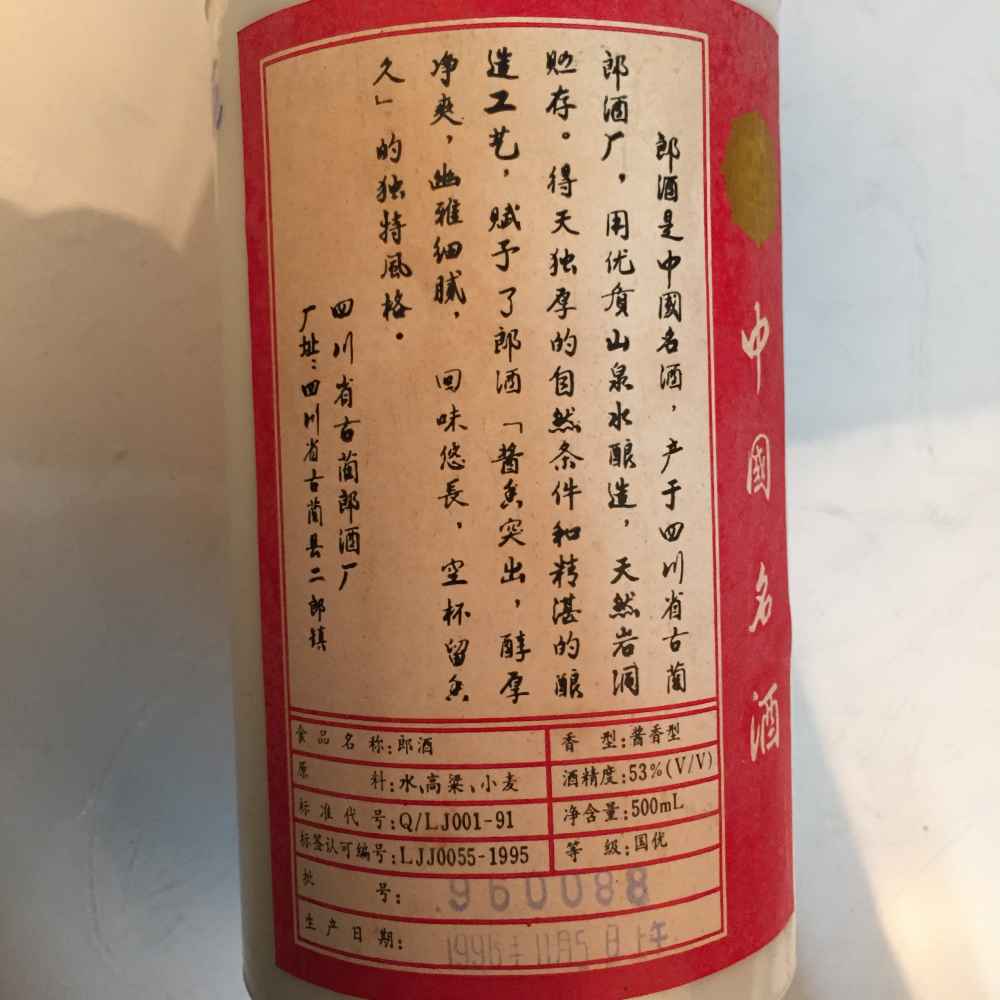 中國名酒
郎酒是中國名酒，产于四川省古蔺
郎酒厂，用优质山泉水酿造，天然岩洞
贮存。得天独厚的自然条件和精湛的酿
造工艺，赋予了郎酒「酱香突出，醇厚
净爽，幽雅细腻，回味悠長，空杯留香
久」的独特風格。
四川省古蔺郎酒厂
厂址：四川省古蔺县二郎镇
食品名称：郎酒
香型：酱香型
原料：水、高粱、小麦
酒精度：53%(V/V)
标准代号：Q/LJ001-91
净含量：500mL
标签认可编号：LJJ0055-1995
等级：国优
批号：960088
生产日期：1996年11月5日上午